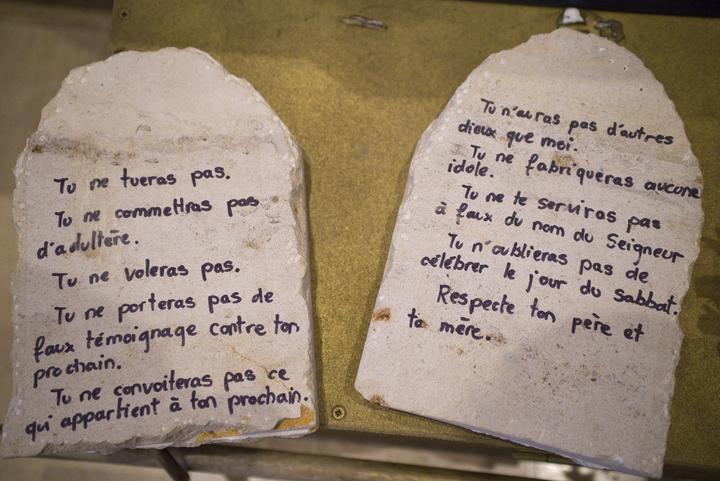 Tu ne tueras pas.
Tu ne commettras pas
d'adultère.
Tu ne voleras pas.
Tu ne porteras pas de
faux témoignage contre ton
prochain.
Tu ne convoiteras pas ce
qui appartient à ton prochain.
Tu n'auras pas d'autres
dieux que moi.
Tu ne fabriqueras aucune
idole.
Tu ne te serviras pas
à faux du nom du Seigneur
Tu n'oublieras pas de
célébrer le jour du Sabbat.
Respecte ton père et
ta mère.